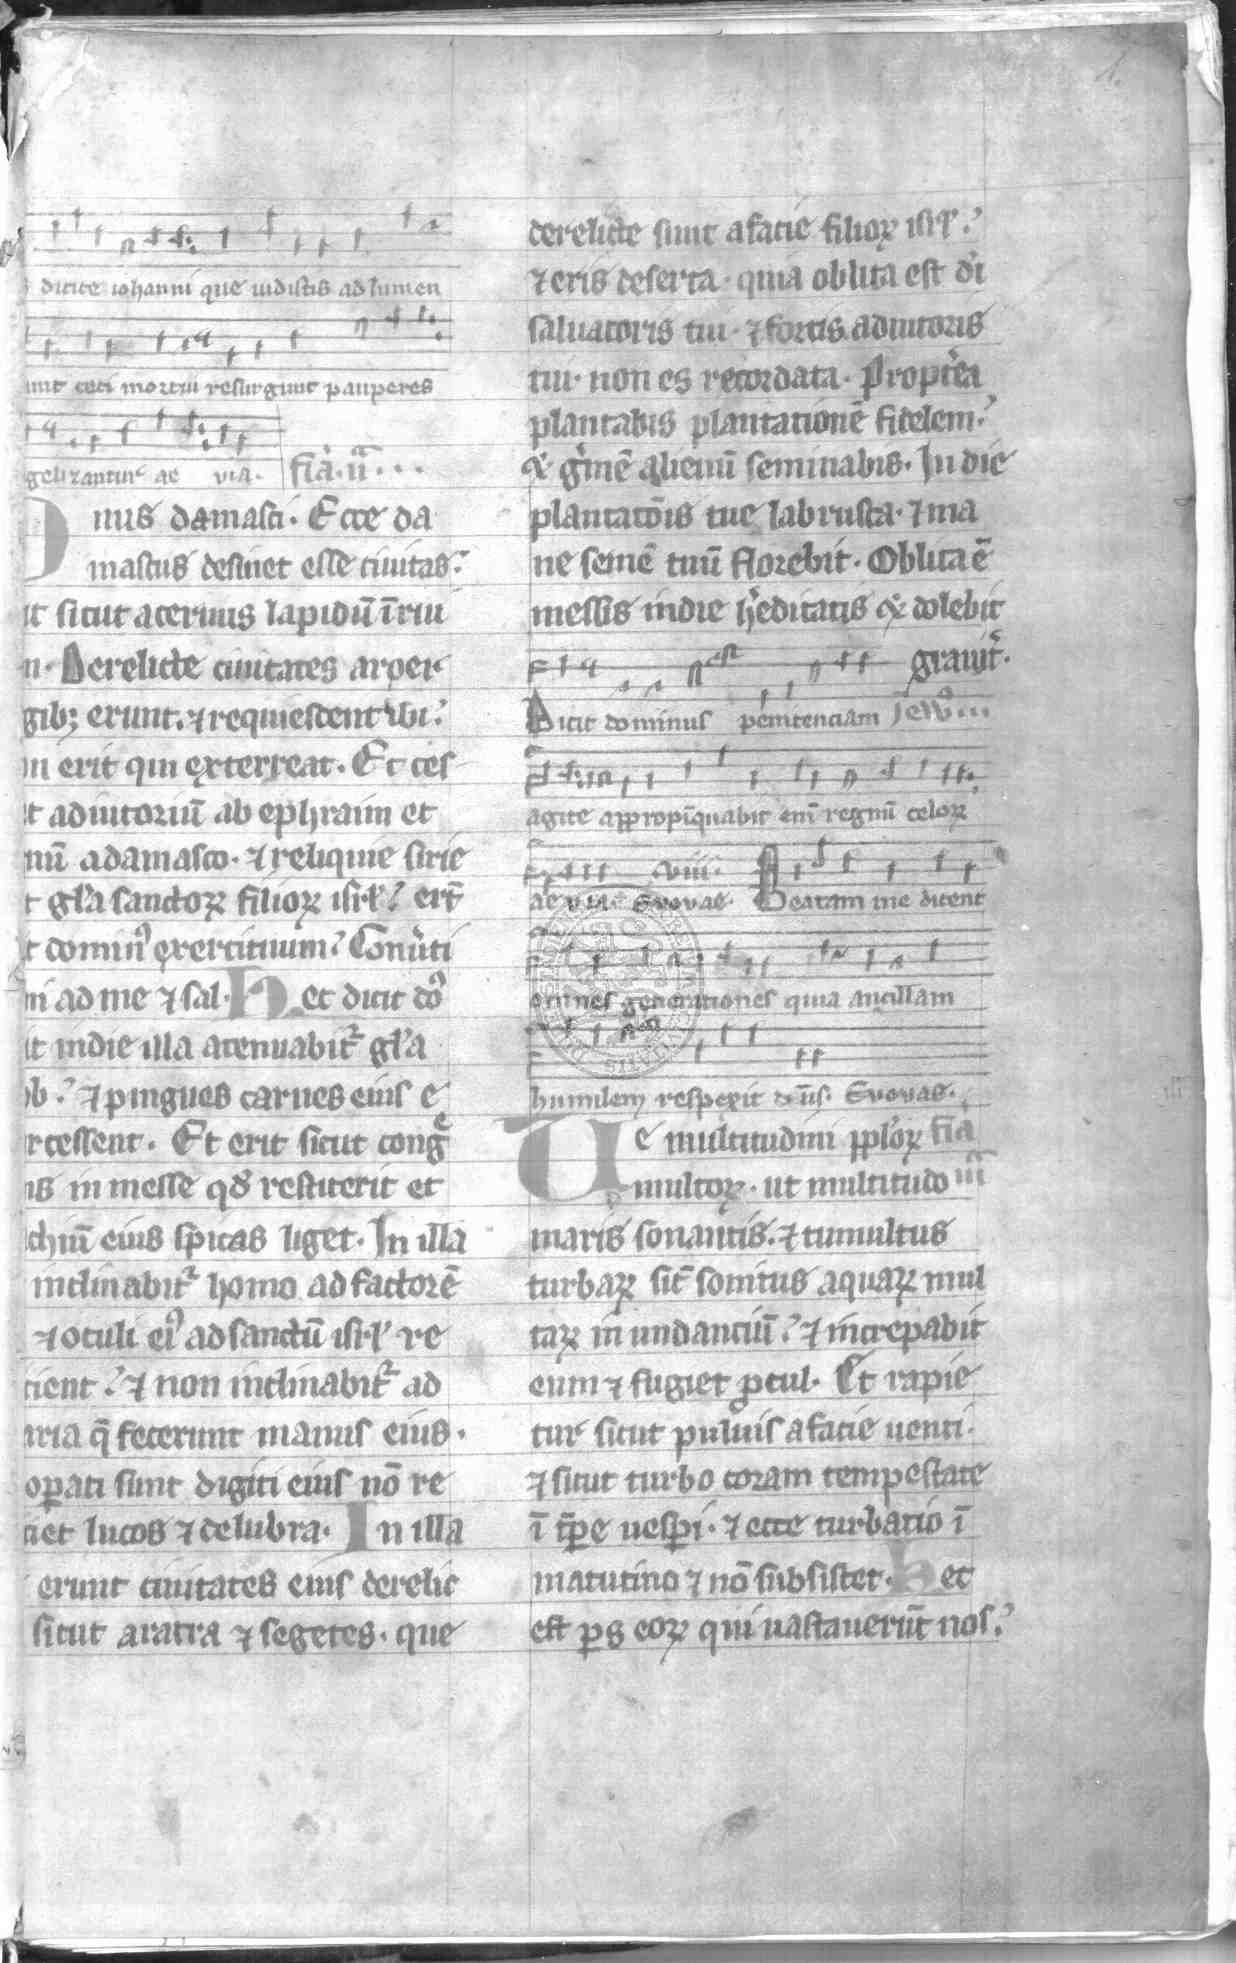 dicite iohanni que uidistis ad lumen
unt ceci mortui resurgunt pauperes
gelizantur ae uia. fia. ii. . .
nus damasci. Ecce da
mascus desinet esse ciuitas.
it sicut aceruus lapidū ī rui
n. Derelicte ciuitates aroer
gib; erunt. ⁊ requiescent ibi.
n erit qui exterreat. Et ces
t adiutoriū ab ephraim et
nū a damasco. ⁊ reliquie sirie
t gl'a sanctoꝝ filioꝝ isrl'. er̄t
t domin' exercituum. Conu'ti
ni ad me ⁊ sal. Hec dicit do'
it in die illa atenuabit' gl'a
ob. ⁊ pingues carnes eius e
rcessent. Et erit sicut cong
ns in messe qd' restiterit et
chiū eius spicas liget. In illa
inclinabit' homo ad factorē
⁊ oculi ei' ad sanctū isrl' re
cient. ⁊ non inclinabit' ad
aria q̄ fecerunt manus eius.
oꝑati sunt digiti eius nō re
ciet lucos ⁊ delubra. In illa
erunt ciuitates eius derelic
sicut aratra ⁊ segetes. que
derelicte sunt a facie filioꝝ isrl'.
⁊ eris deserta. quia oblita es dī
saluatoris tui. ⁊ fortis adiutoris
tui. non es recordata. Propt'ea
plantabis plantationē fidelem.
⁊ g'men alienū seminabis. In die
plantatōis tue labrusca. ⁊ ma
ne semē tuū florebit. Oblita ē
messis in die h'editatis ⁊ dolebit
grauit'.
Dicit dominus penitenciam
agite appropīquabit enī regnū celoꝝ
ae uia. Euouae. viii. Beatam me dicent
omnes generationes quia ancillam
humilem respexit de'us. Euouae.
Ue multitudini pploꝝ fia
multoꝝ. ut multitudo iii
maris sonantis. ⁊ tumultus
turbaꝝ sic̄ sonitus aquaꝝ mul
taꝝ in undanciū. ⁊ increpabit
eum ⁊ fugiet ꝓcul. Et rapie
tur sicut puluis a facie uenti.
⁊ sicut turbo coram tempestate
ī tp̄e uesꝑi. ⁊ ecce turbatio ī
matutino ⁊ nō subsistet. Hec
est ꝑs eoꝝ qui uastauerūt nos.